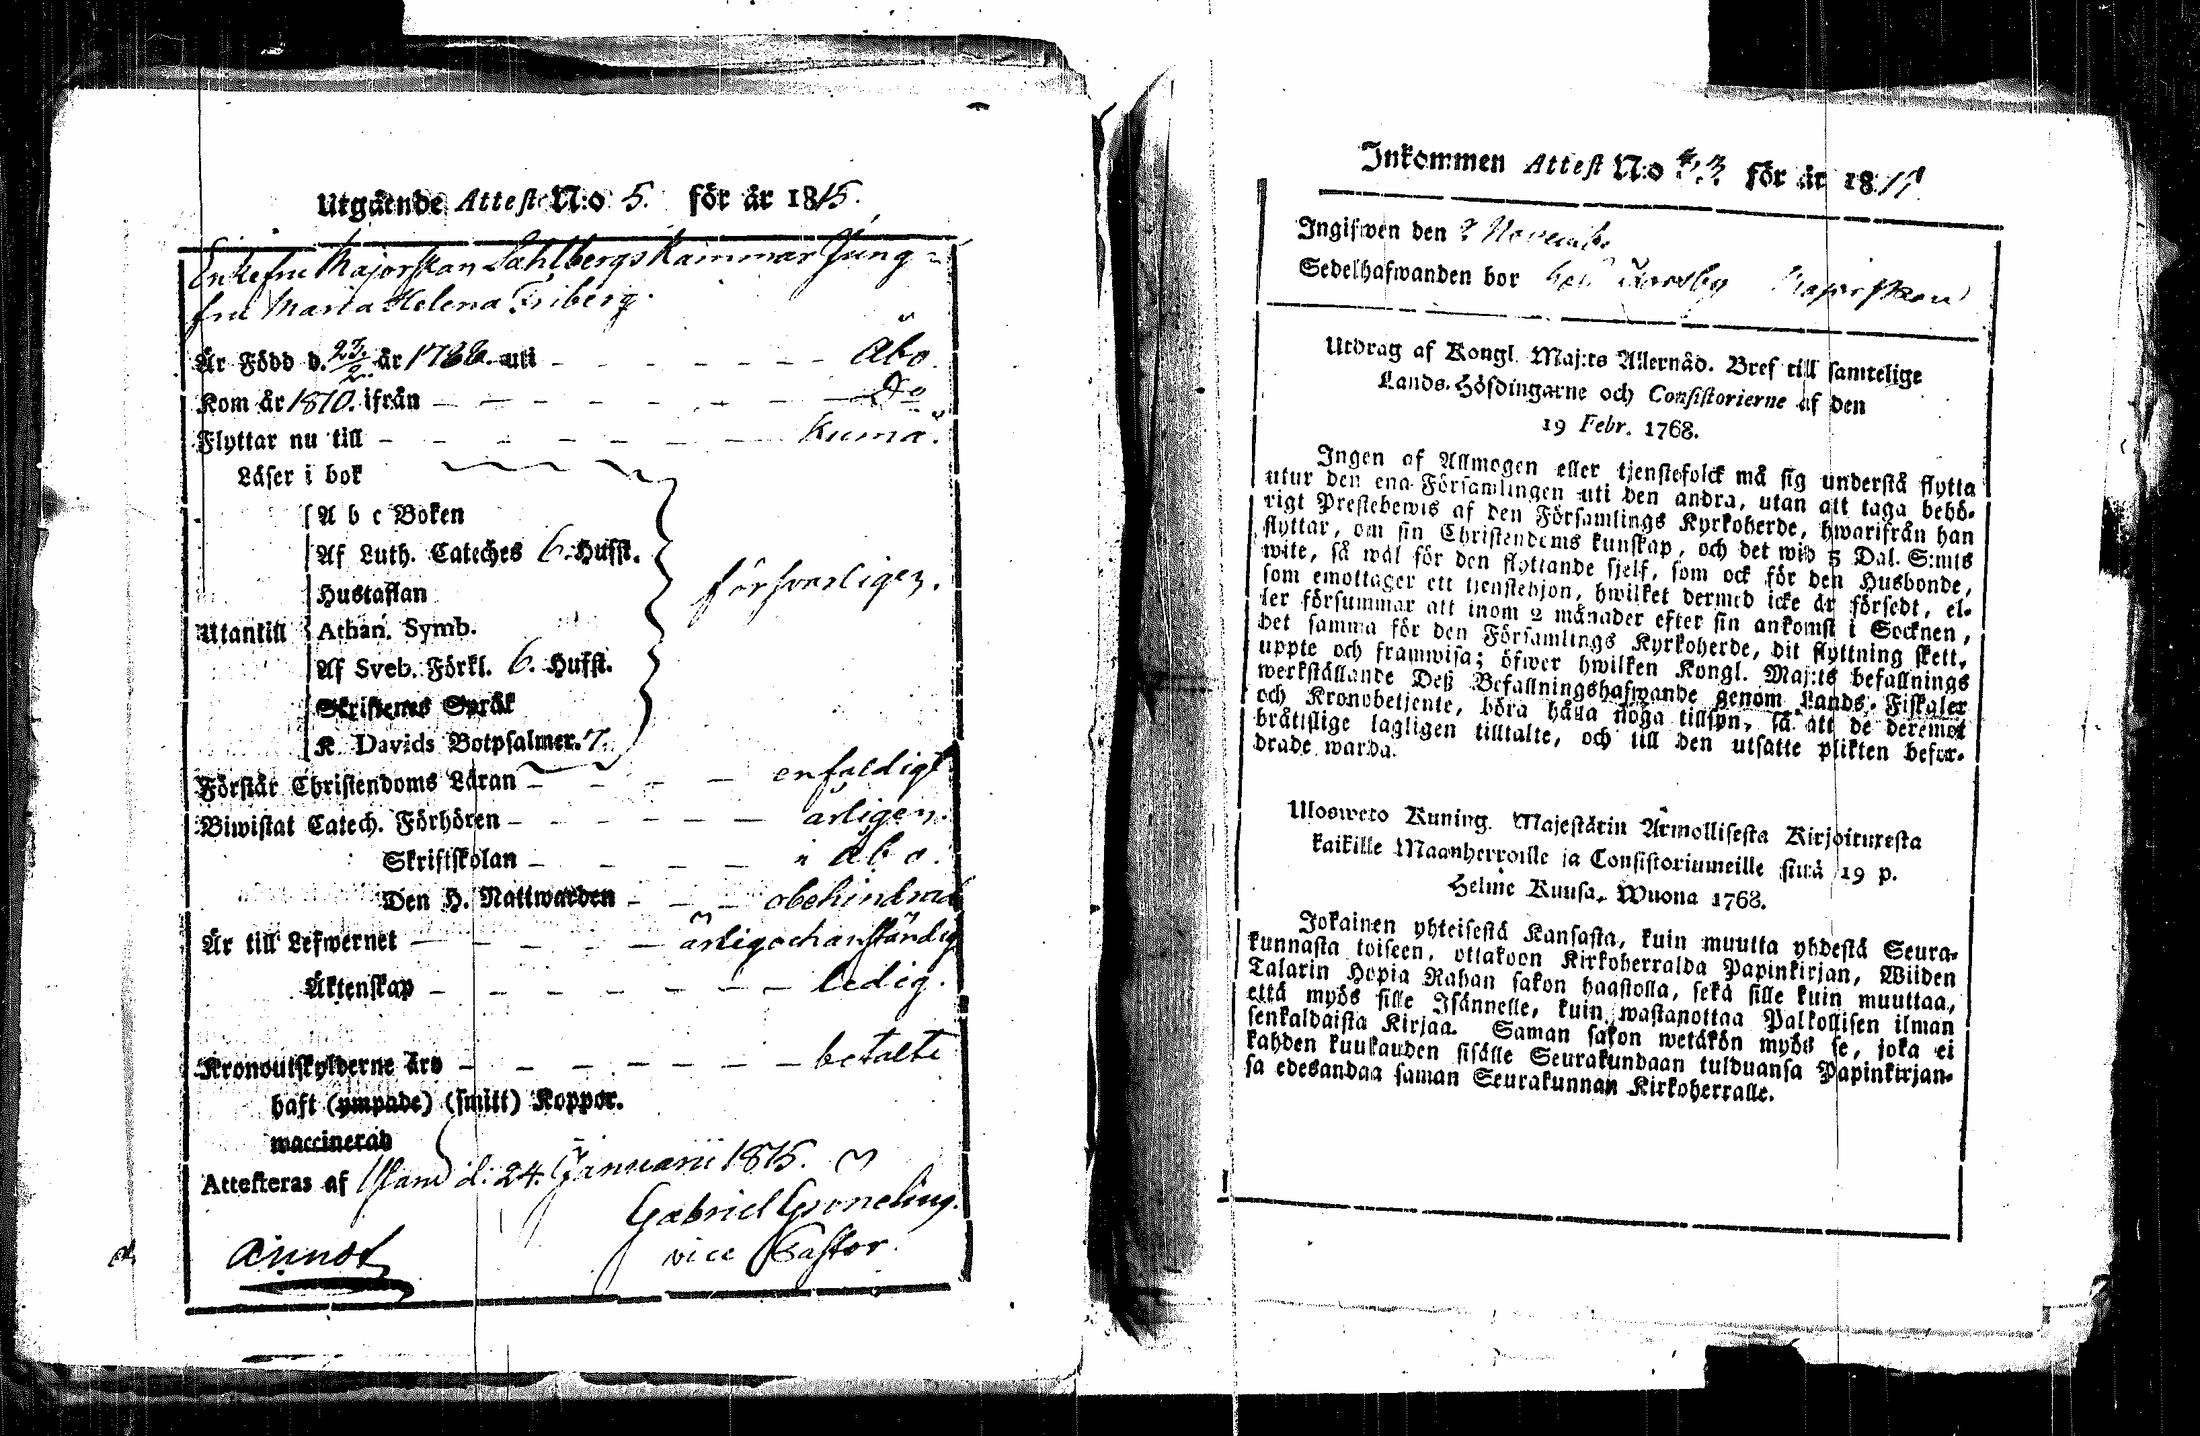 Utgående Attest N:o 5. för år 1815.
Enkefru Majorskan Sahlbergs Kammar Jung=
fru Maria Helena Friberg.
Är Född d. 23/2. år 1788. uti — Åbo.
Kom år 1810. ifrån — Do
Flyttar nu till — Kumo.
Läser i bok
A b c Boken
Af Luth. Cateches 6. Hufst.
försvarligen.
Hustaflan
Utantill Athan. Symb.
Af Sveb. Förkl. 6. Hufst.
Skriftenes Språk
K. Davids Botpsalmer. 7.
Förstår Christendoms Läran — enfaldigt
Biwistat Catech. Förhören — årligen.
Skriftskolan — i Åbo.
Den H. Nattwarden — obehindrad
Är till Lefwernet — ärlig och anständig
Äktenskap — ledig.
Kronoutskylderne äro — betalte
haft (ympade) (smitt) Koppor.
waccinerad
Attesteras af d. 24. Januarii 1815.
Gabriel Groneling.
vice Pastor.
annot
Inkommen Attest N:o för år 18
Ingifwen den Novemb
Sedelhafwanden bor Majorskan
Utdrag af Kongl. Maj:ts Allernåd. Bref till samtelige
Lands-Höfdingarne och Consistorierne af den
19 Febr. 1768.
Ingen af Allmogen eller tjenstefolck må sig understå flytta
utur den ena Församlingen uti den andra, utan att taga behö-
rigt Prestebewis af den Församlings Kyrkoherde, hwarifrån han
flyttar, om sin Christendoms kunskap, och det wid 5 Dal. S:mts
wite, så wäl för den flyttande sjelf, som ock för den Husbonde,
som emottager ett tjenstehjon, hwilket dermed icke är försedt, el-
ler försummar att inom 2 månader efter sin ankomst i Socknen,
det samma för den Församlings Kyrkoherde, dit flyttning skett,
uppte och framwisa; öfwer hwilken Kongl. Maj:ts befallnings
werkställande Deß Befallningshafwande genom Lands-Fiskaler
och Kronobetjente, böra hålla noga tillsyn, så att de deremot
bråttslige lagligen tilltalte, och till den utsatte plikten befor-
drade warda.
Ulosweto Kuning. Majestätin Armollisesta Kirjoituxesta
kaikille Maanherroille ja Consistoriumeille siitä 19 p.
Helme Kuusa, Wuona 1768.
Jokainen yhteisestä Kansasta, kuin muutta yhdestä Seura-
kunnasta toiseen, ottakoon Kirkoherralda Papinkirjan, Wiiden
Talarin Hopia Rahan sakon haastolla, sekä sille kuin muuttaa,
että myös sille Isännelle, kuin wastanottaa Palkollisen ilman
senkaldaista Kirjaa. Saman sakon wetäkön myös se, joka ei
kahden kuukauden sisälle Seurakundaan tulduansa Papinkirjan-
sa edesandaa saman Seurakunnan Kirkoherralle.